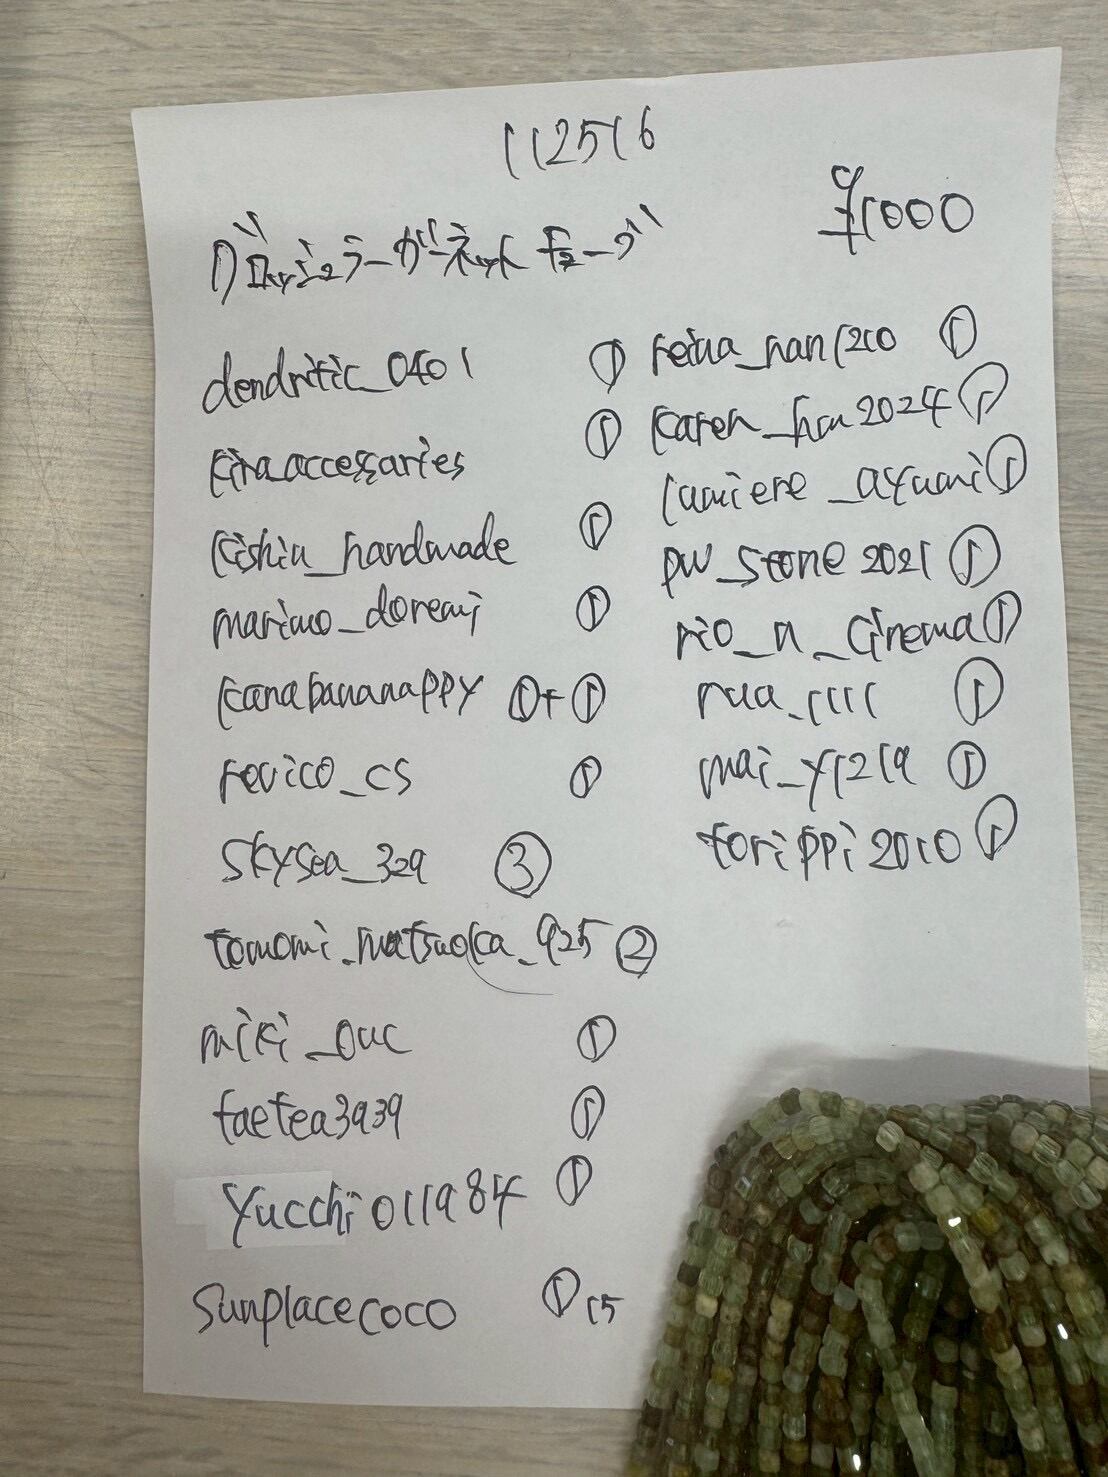 112516
¥1000
グロッシュラーガーネットキューブ
dendritic_0401 ①
kira.accessaries ①
kishin_handmade ①
marimo_doremi ①
kanabananappy ①+①
revico_cs ①
skysea_329 ③
tomomi_matsuoka_925 ②
miki_ouc ①
taetea3939 ①
yucchi011984 ①
sunplacecoco ① 15
reina_nan1210 ①
karen_han2024 ①
lumiere_ayumi ①
pw_stone2021 ①
rio_n_cinema ①
rua_1111 ①
mai_y1219 ①
torippi2010 ①